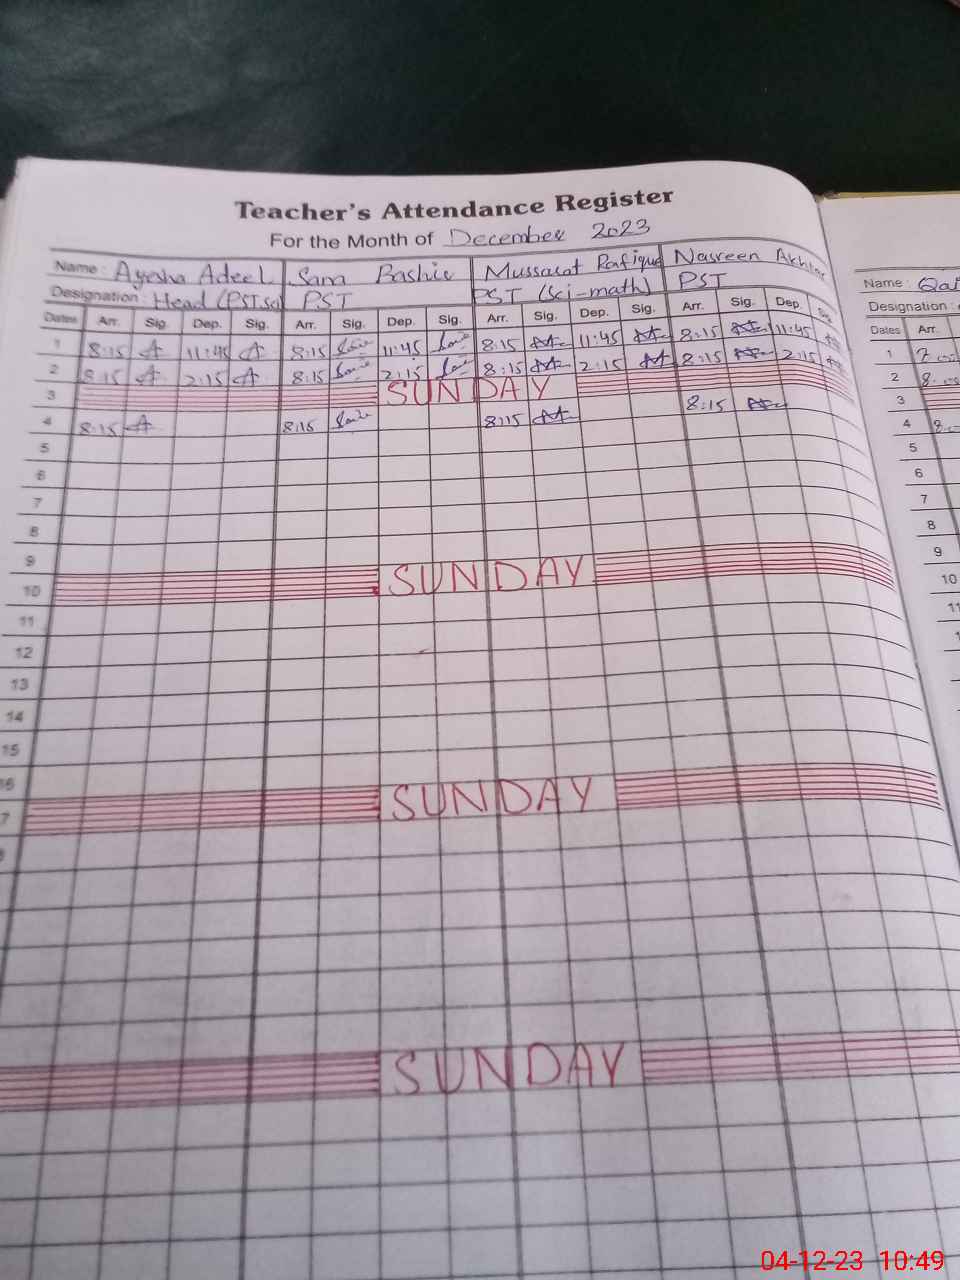 Teacher's Attendance Register
For the Month of December 2023
Name : Ayesha Adeel Sara Bashir Mussarat Rafique Nasreen Akhtar
Designation : Head (PSTsci) PST PST (Sci-math) PST
Dates Arr. Sig. Dep. Sig. Arr. Sig. Dep. Sig. Arr. Sig. Dep. Sig. Arr. Sig. Dep. Sig.
1 8:15 A 11:45 A 8:15 11:45 8:15 11:45 8:15 11:45
2 8:15 A 2:15 A 8:15 2:15 8:15 2:15 8:15 2:15
3 SUNDAY
4 8:15 A 8:15 8:15 8:15
5
6
7
8
9
10 SUNDAY
11
12
13
14
15
16
7 SUNDAY
SUNDAY
Name : Qa
Designation :
Dates Arr.
1
2 8:
3
4 8:
5
6
7
8
9
10
11
04-12-23 10:49